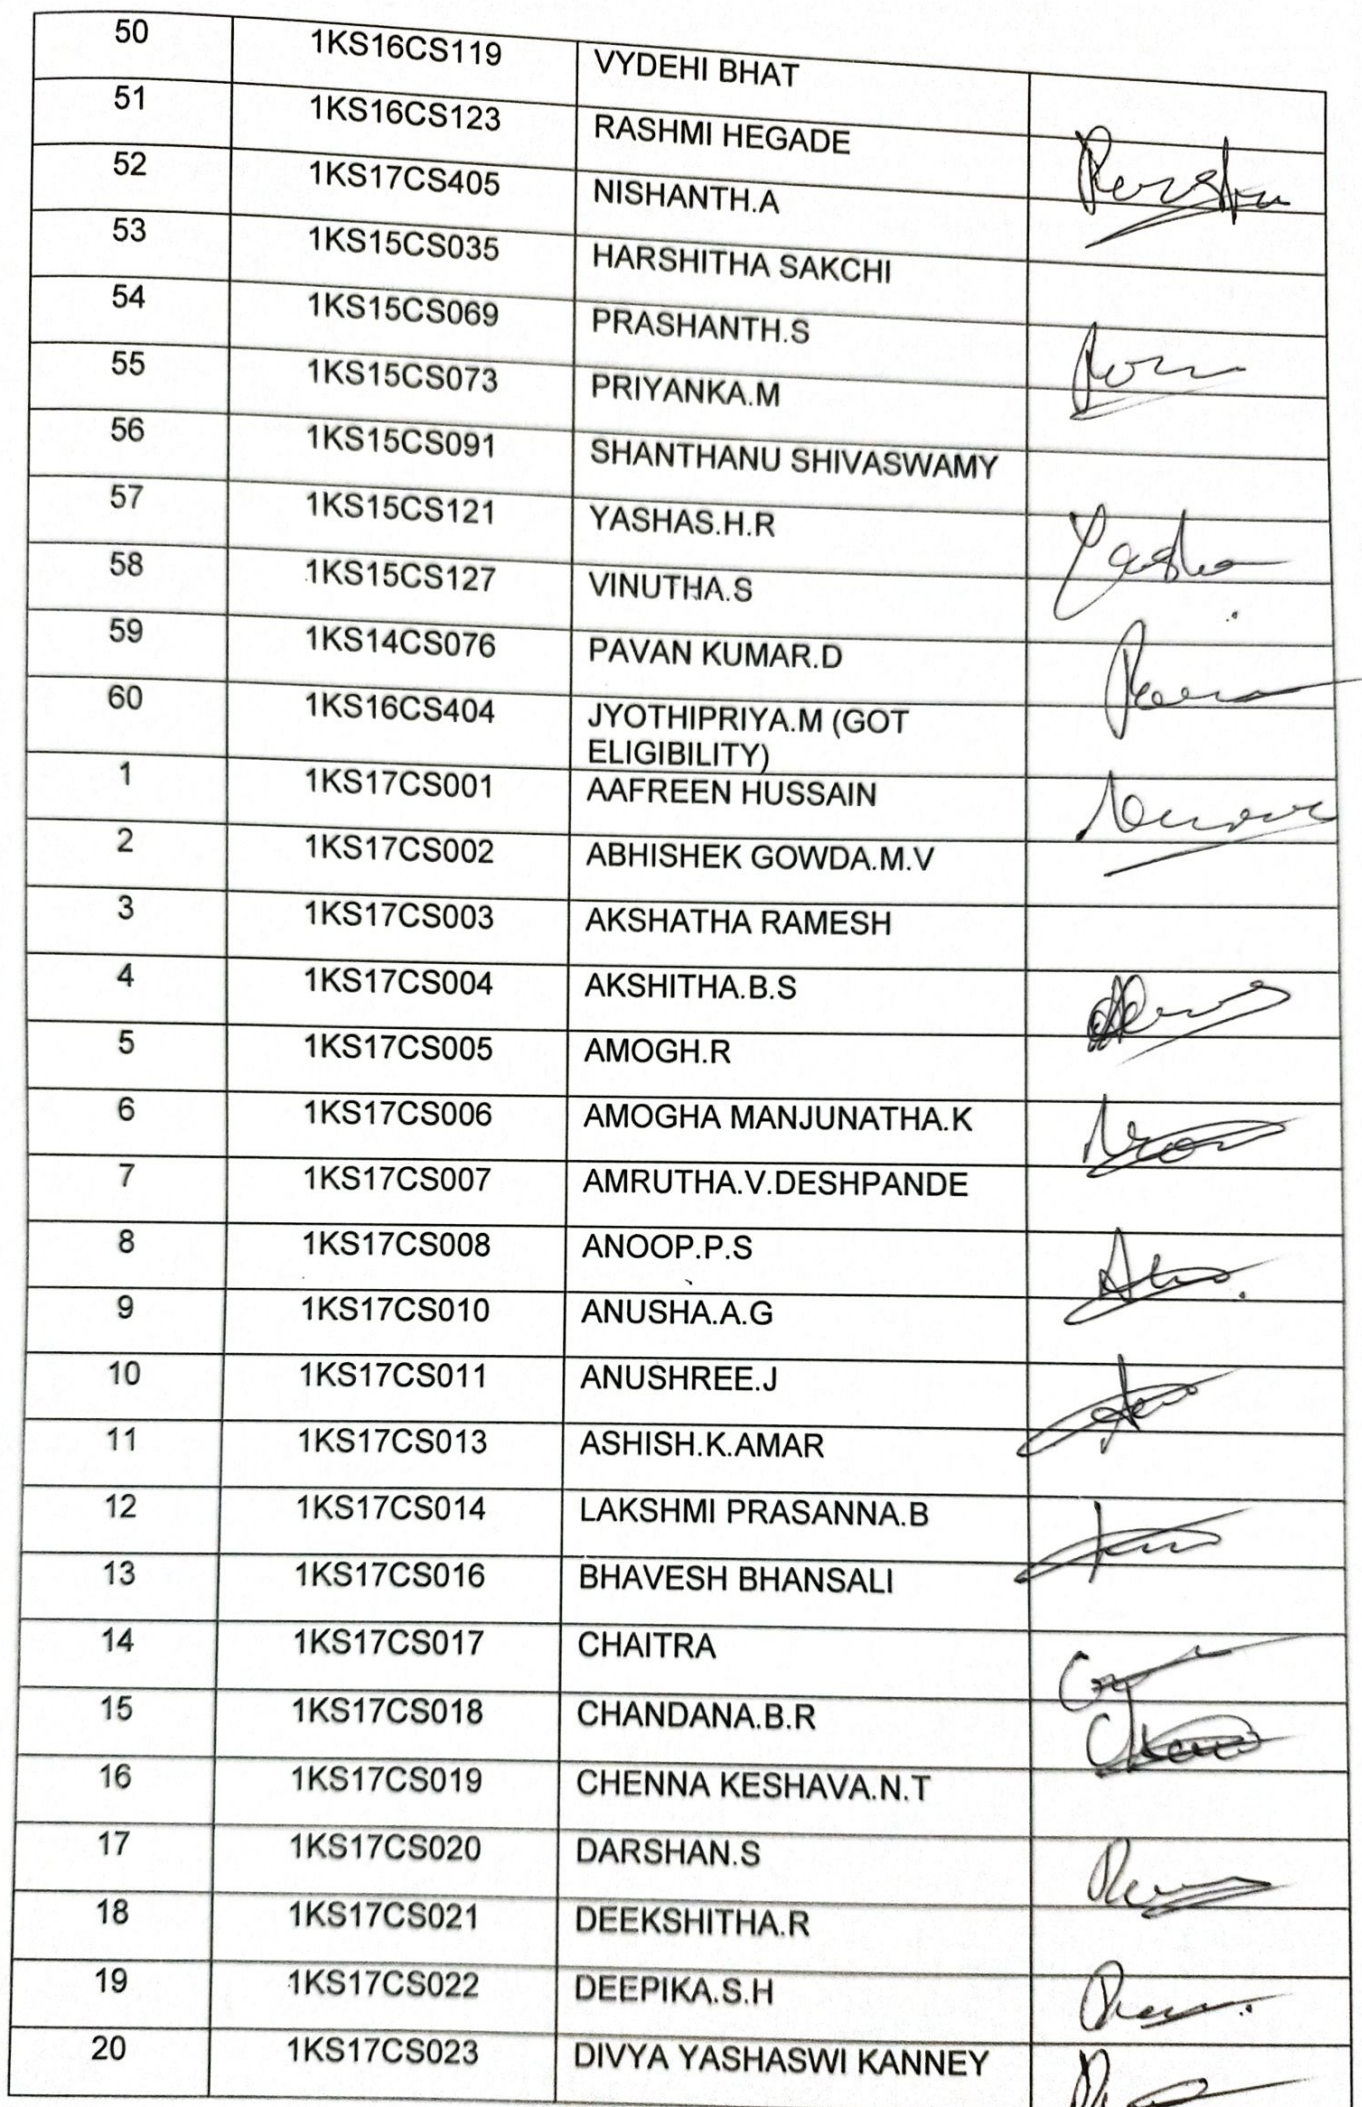 50 1KS16CS119 VYDEHI BHAT
51 1KS16CS123 RASHMI HEGADE
52 1KS17CS405 NISHANTH.A
53 1KS15CS035 HARSHITHA SAKCHI
54 1KS15CS069 PRASHANTH.S
55 1KS15CS073 PRIYANKA.M
56 1KS15CS091 SHANTHANU SHIVASWAMY
57 1KS15CS121 YASHAS.H.R
58 1KS15CS127 VINUTHA.S
59 1KS14CS076 PAVAN KUMAR.D
60 1KS16CS404 JYOTHIPRIYA.M (GOT
ELIGIBILITY)
1 1KS17CS001 AAFREEN HUSSAIN
2 1KS17CS002 ABHISHEK GOWDA.M.V
3 1KS17CS003 AKSHATHA RAMESH
4 1KS17CS004 AKSHITHA.B.S
5 1KS17CS005 AMOGH.R
6 1KS17CS006 AMOGHA MANJUNATHA.K
7 1KS17CS007 AMRUTHA.V.DESHPANDE
8 1KS17CS008 ANOOP.P.S
9 1KS17CS010 ANUSHA.A.G
10 1KS17CS011 ANUSHREE.J
11 1KS17CS013 ASHISH.K.AMAR
12 1KS17CS014 LAKSHMI PRASANNA.B
13 1KS17CS016 BHAVESH BHANSALI
14 1KS17CS017 CHAITRA
15 1KS17CS018 CHANDANA.B.R
16 1KS17CS019 CHENNA KESHAVA.N.T
17 1KS17CS020 DARSHAN.S
18 1KS17CS021 DEEKSHITHA.R
19 1KS17CS022 DEEPIKA.S.H
20 1KS17CS023 DIVYA YASHASWI KANNEY